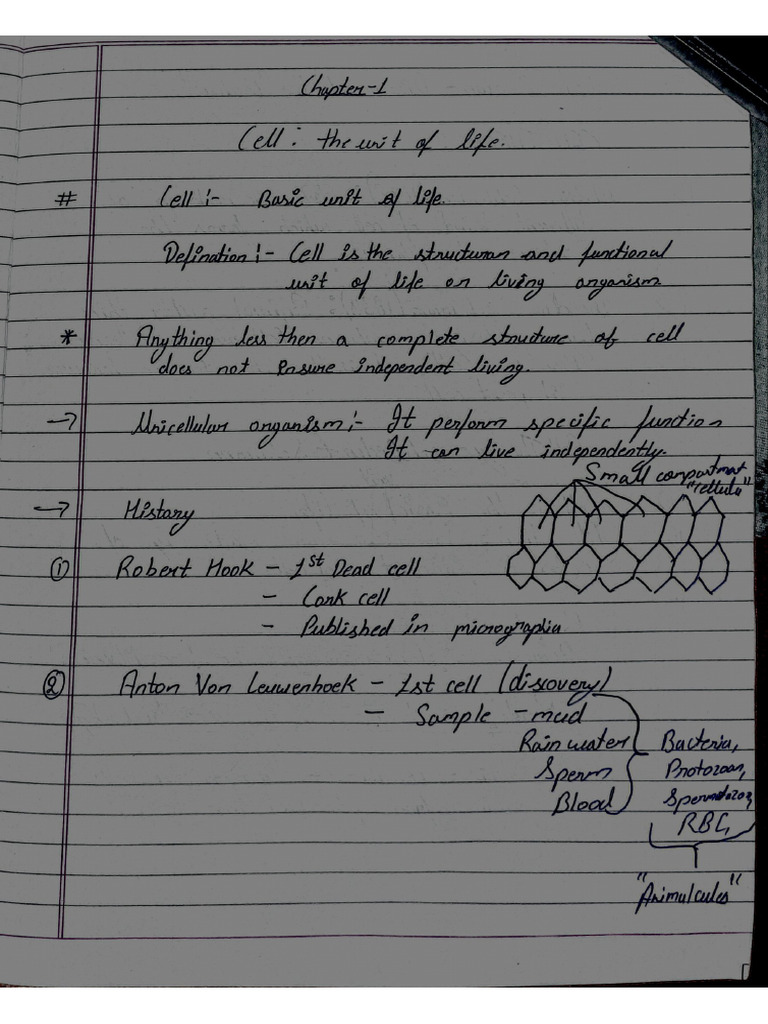 Chapter-1
Cell: the unit of life.
# Cell :- Basic unit of life.
Defination :- Cell is the structuran and functional
unit of life on living onganism
* Anything less then a complete structure of cell
does not Ensure independent living.
→ Unicellular organism :- It perform specific function
It can live independently.
Small compartmat
"cellula"
→ History
① Robert Hook - 1st Dead cell
- Cork cell
- Published in micrographia
② Anton Von Leuwenhoek - 1st cell (discovery)
- Sample - mud
Rain water
Sperm
Blood
Bacteria,
Protozoan,
Spermatozoa,
RBC,
"Animulcules"